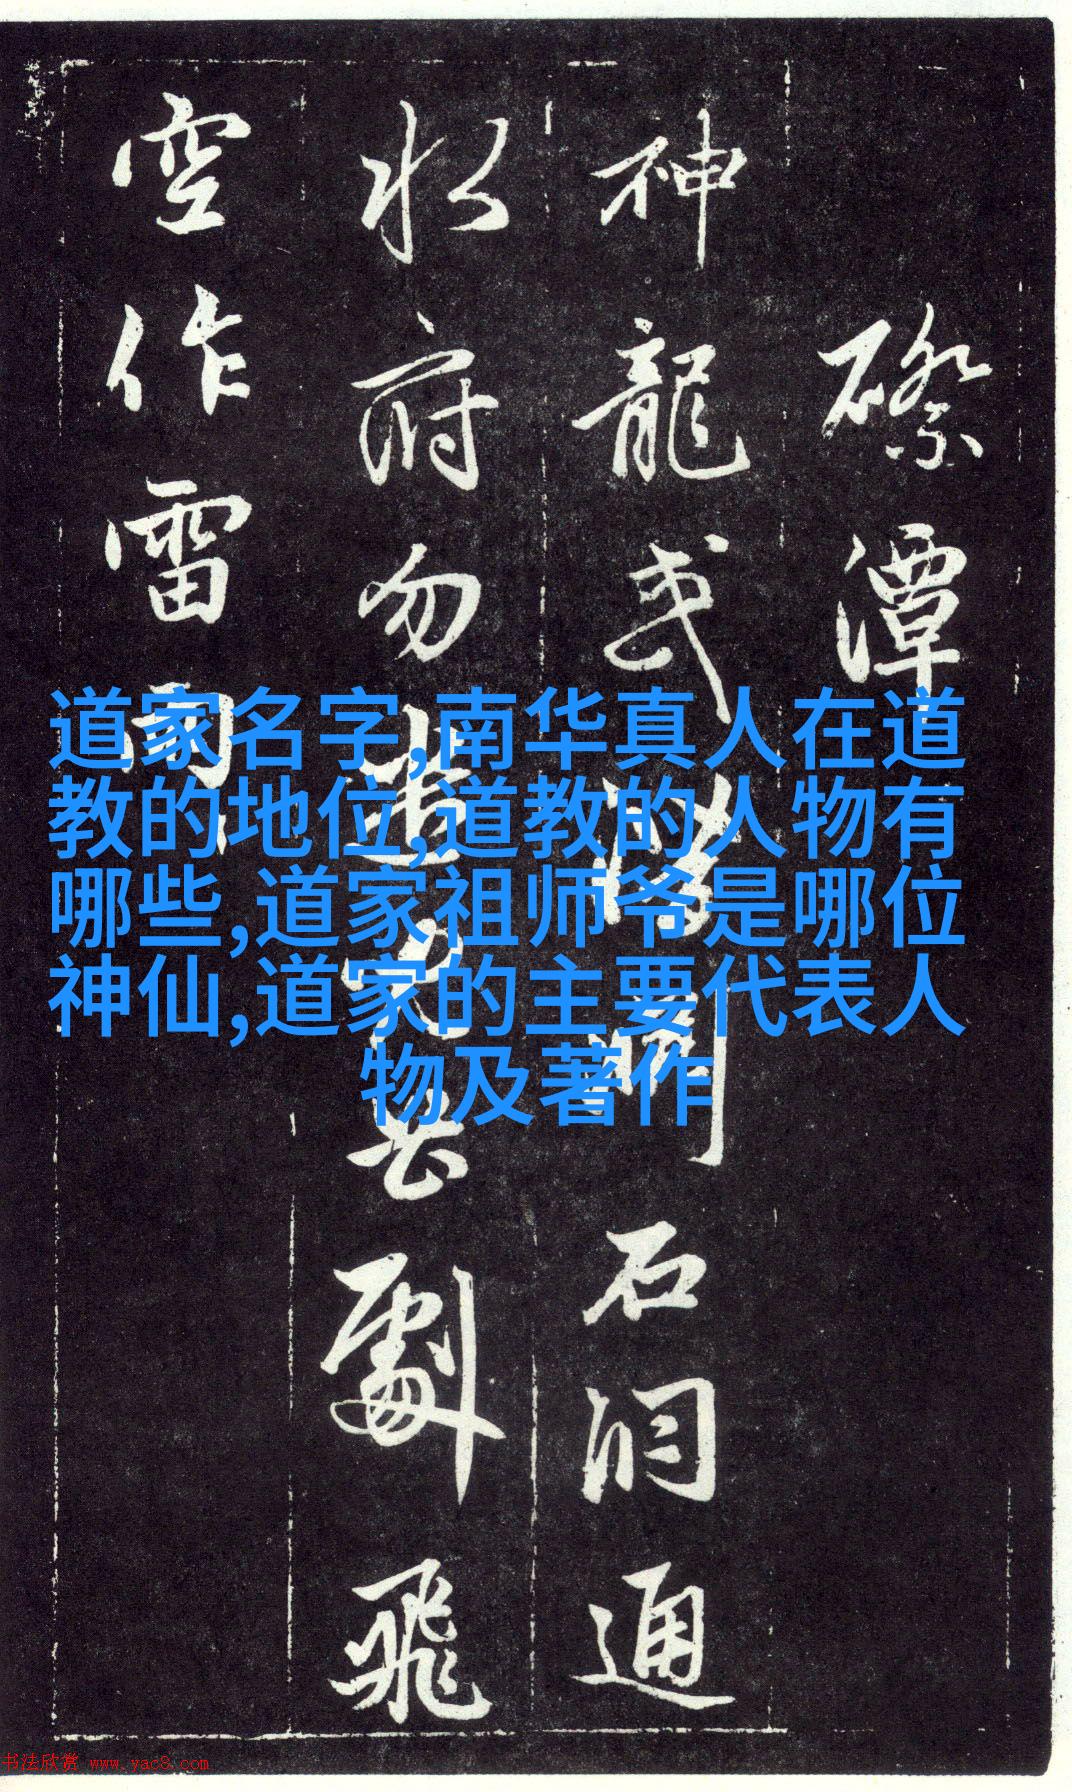 潭
神龍或潛石洞通
水府勿劇飛
空作雷雨
道家名字,南华真人在道
教的地位,道教的人物有
哪些,道家祖师爷是哪位
神仙,道家的主要代表人
物及著作
书法欣赏 www.yac8.com